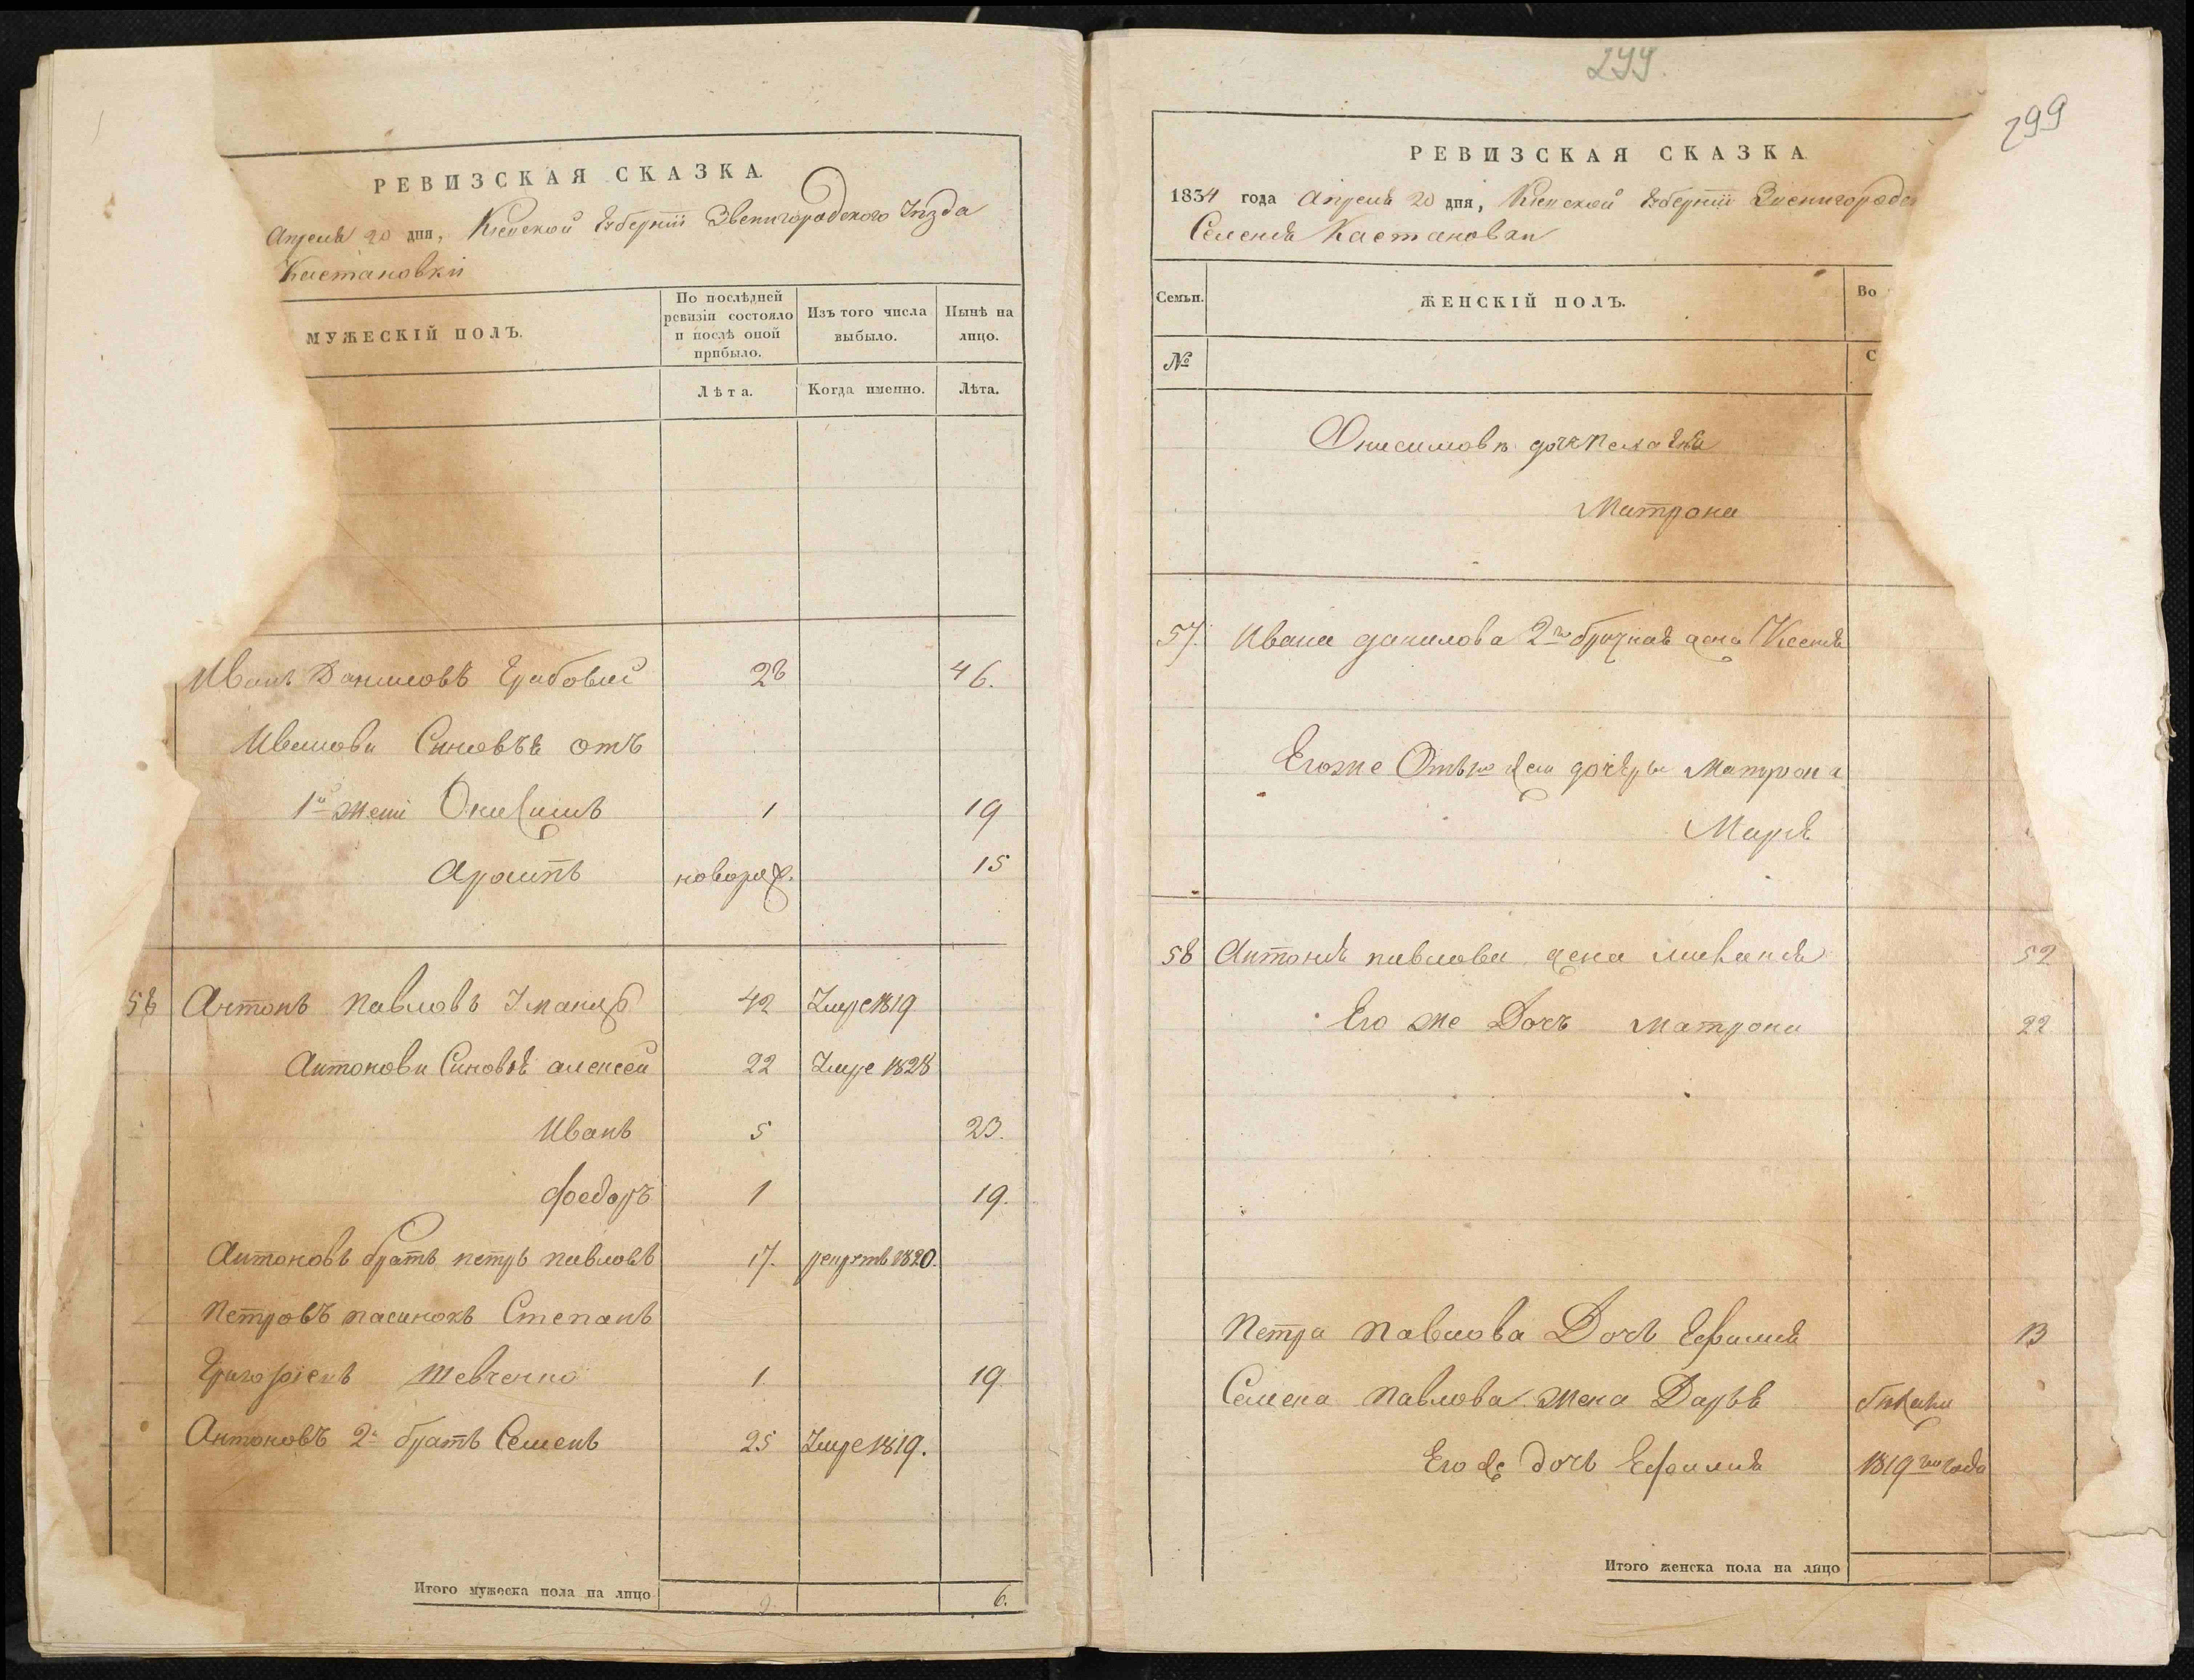 РЕВИЗСКАЯ СКАЗКА.
Апреля 20 дня, Киевской Губернии Звенигородского Уизда
Кастановки
МУЖЕСКІЙ ПОЛЪ.
По послѣдней ревизіи состояло и послѣ оной прибыло.
Изъ того числа выбыло.
Нынѣ на лицо.
Лѣта.
Когда именно.
Лѣта.
Иванъ Даниловъ 28 46.
Ивановы Сыновья отъ
1й жены Онисимъ 1 19
Архипъ новорож. 15
58 Антонъ Павловъ 42 Умре 1819
Антоновы Сыновья алексей 22 Умре 1828
Иванъ 5 23.
Федоръ 1 19.
Антоновъ братъ петръ павловъ 17. рекрутъ 1820.
Петровъ пасинокъ Степанъ
Григориевъ Шевченко 1. 19.
Антоновъ 2й братъ Семенъ 25 Умре 1819.
Итого мужеска пола на лицо 9. 6.
299.
299
РЕВИЗСКАЯ СКАЗКА
1834 года Апреля 20 дня, Киевской Губернии Звенигородс
Селения Кастановки
Семьи.
ЖЕНСКІЙ ПОЛЪ.
Во
№
С
Онисимова дочь Пелагея
Матрона
57. Ивана данилова 2го брачная жена Ксения
Его же От 1й жени дочеры Матрона
Мария
58 Антония павлова жена 52
Его же Дочь Матрона 22
Петра Павлова Дочь Ефимия 13
Семена Павлова жена Дарья бежали
Его же дочь Ефимия 1819го года
Итого женска пола на лицо